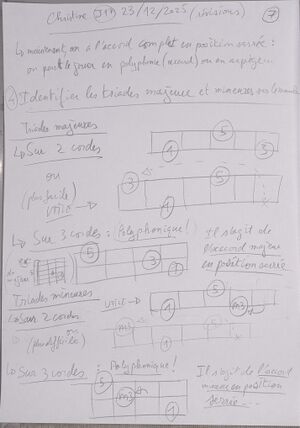 Christine (J17) 23/12/2025 (révisions) 7
↳ maintenant, on a l'accord complet en position serrée :
on peut le jouer en polyphonie (accord) ou en arpèges
Identifier les triades majeures et mineures sur le manche
Triades majeures
↳ Sur 2 cordes
5
1 3
ou
(plus facile)
3
utile →
1
↳ Sur 3 cordes : (Polyphonique!)
Il s'agit de
l'accord majeur
en position serrée
5
3
1
Triades mineures
utile →
5
↳ Sur 2 cordes
1 m3
ou
(plus difficile)
m3
↳ Sur 3 cordes : Polyphonique!
Il s'agit de l'accord
mineur en position
serrée...
5
m3
1